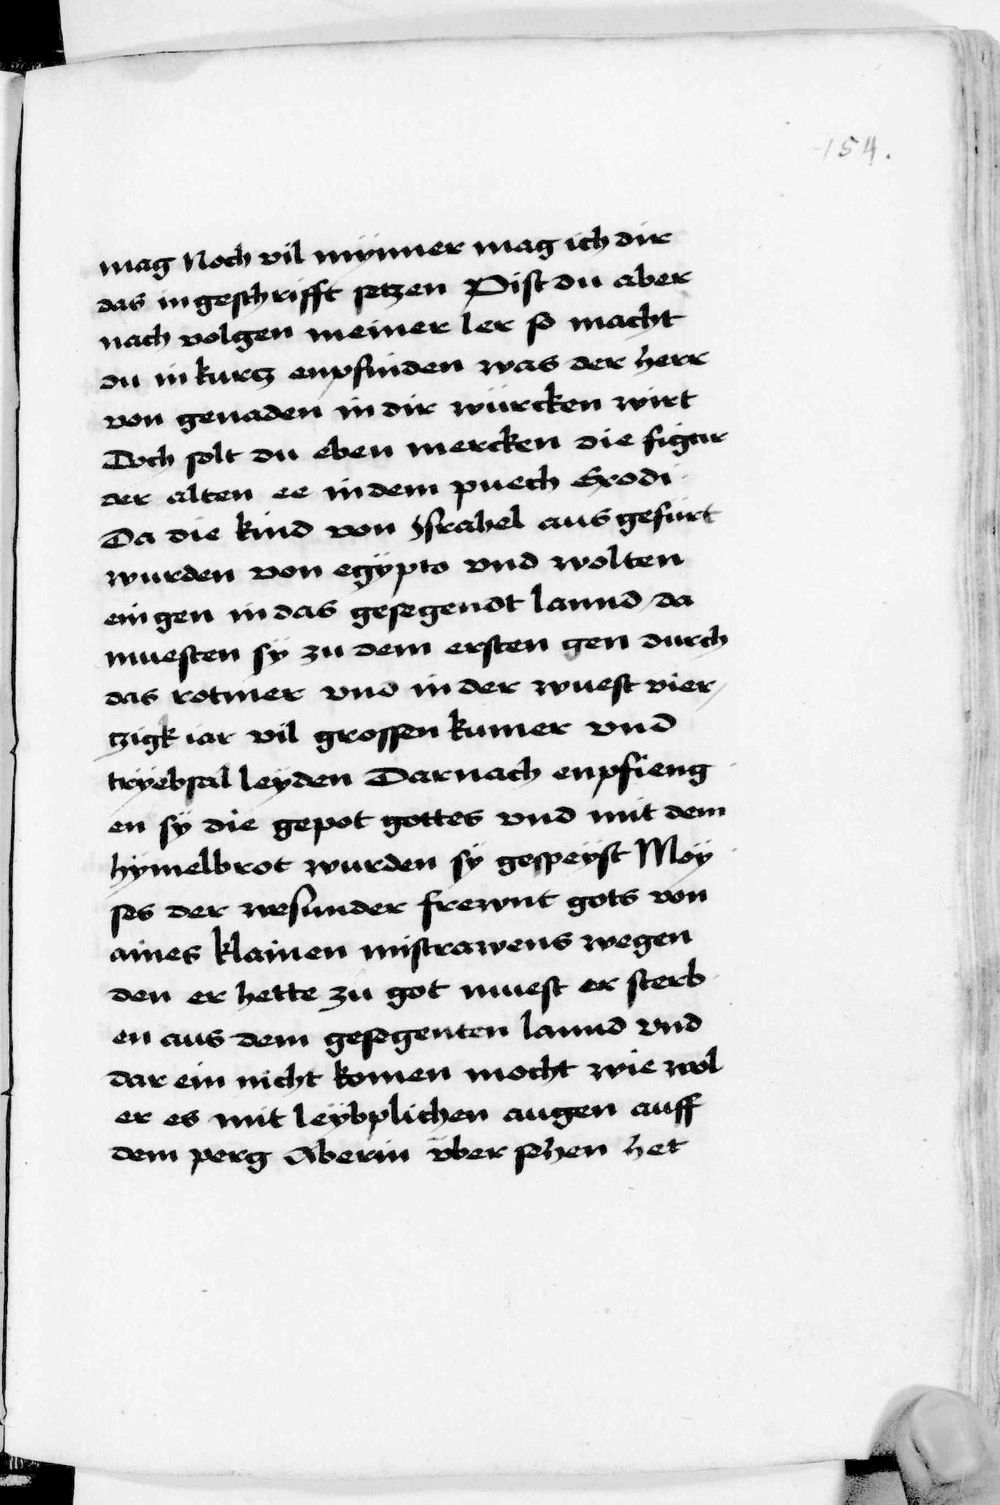 154.
mag Noch vil mynner mag ich dir
das in geschrifft setzen Pist du aber
nach volgen meiner ler so macht
du in kurtz enpfinden was der herr
von genaden in dir würcken wirt
Doch solt du eben mercken die figur
der alten ee in dem puech Exodi
Da die kind von Israhel aus gefürt
wurden von egÿpto vnd wolten
ein gen in das gesegendt lannd / da
muesten sÿ zu dem ersten gen durch
das rotmer vnd in der wuest vier /
tzigk iar vil grossen kumer vnd
trÿebsal leÿden Darnach enpfieng
en sÿ die gepot gottes vnd mit dem
hÿmelbrot wurden sÿ gespeÿst Moÿ
ses der wesunder frewnt gots von
aines klainen mistrawens wegen
den er hette zu got muest er sterb
en aus dem gesegenten lannd vnd
dar ein nicht komen mocht wie wol
er es mit leÿbplichen augen auff
dem perg Aberin über sehen het